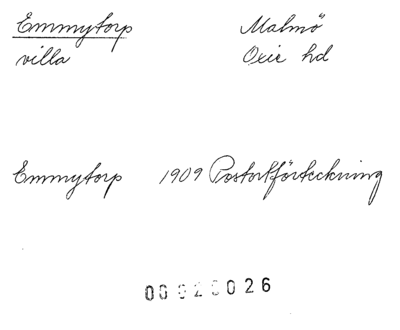 Emmytorp Malmö
villa Oxie hd
Emmytorp 1909 Postortförteckning